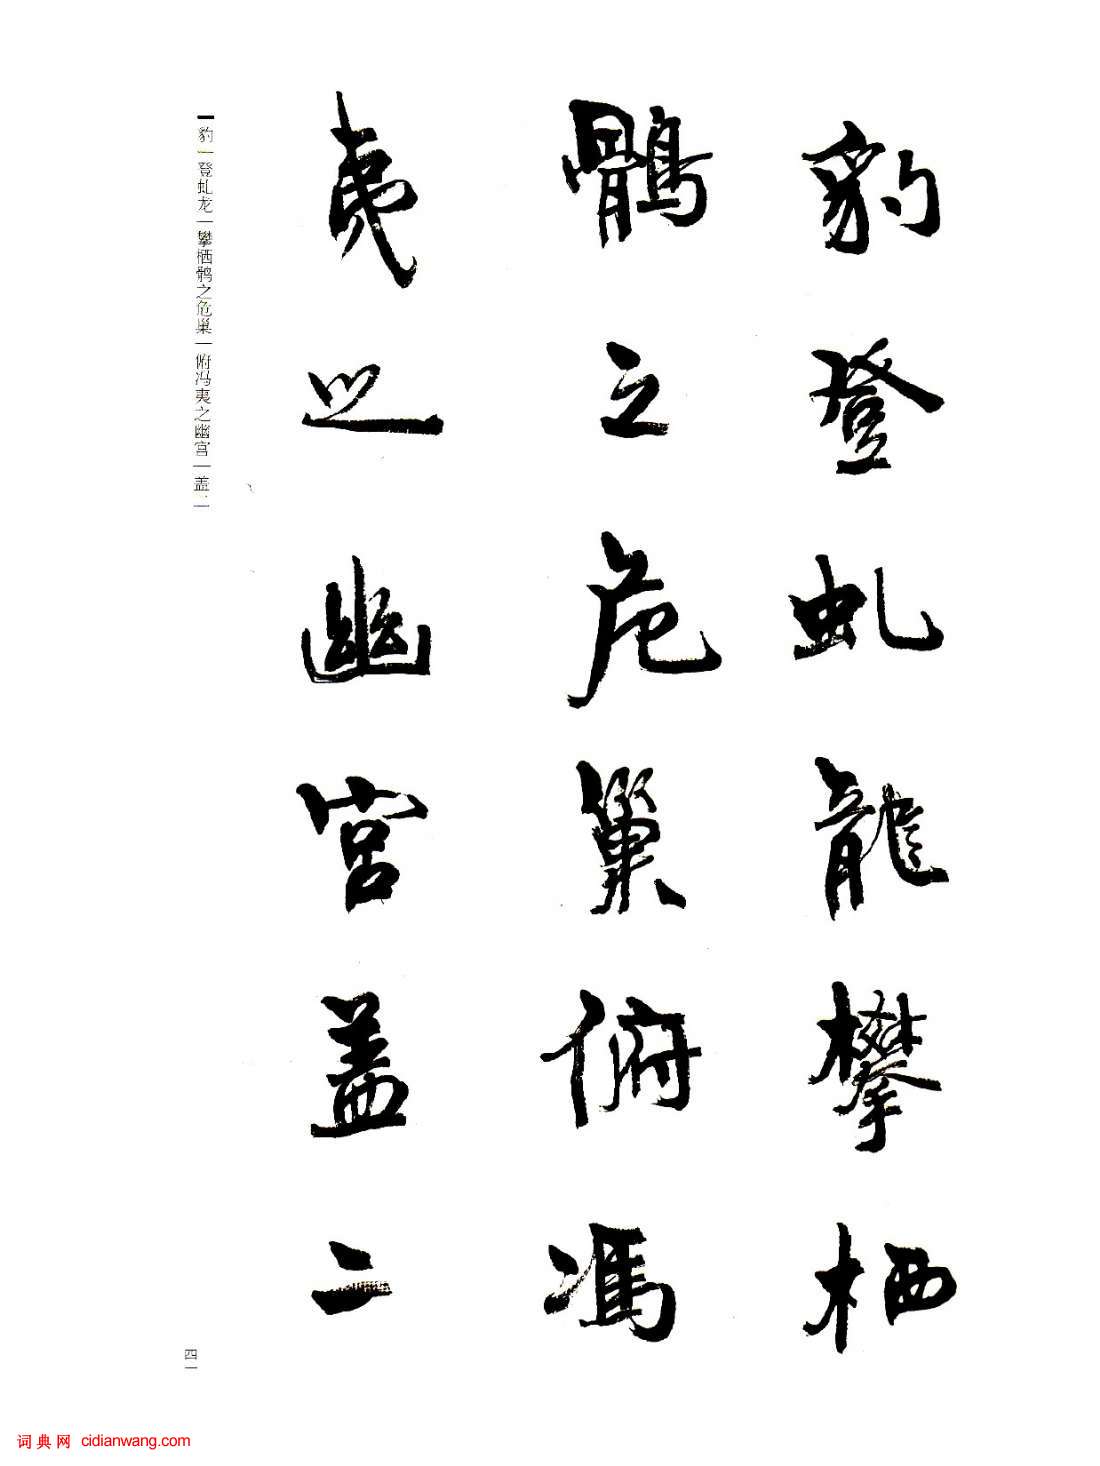 豹登虬龍攀栖
鶻之危巢俯馮
夷之幽宮盖二
豹一登虬龙一攀栖鹘之危巢一俯冯夷之幽宫一盖二
四一
词典网 cidianwang.com